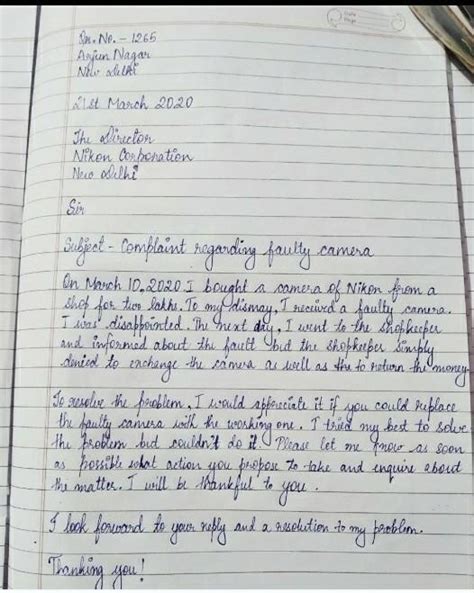 Qr. No. - 1265
Arjun Nagar
New Delhi
21st March 2020
The Director
Nikon Corporation
New Delhi
Sir
Subject - Complaint regarding faulty camera
On March 10, 2020 I bought a camera of Nikon from a
shop for two lakhs. To my dismay, I received a faulty camera.
I was disappointed. The next day, I went to the shopkeeper
and informed about the fault but the shopkeeper simply
denied to exchange the camera as well as the to return the money
To resolve the problem, I would appreciate it if you could replace
the faulty camera with the working one. I tried my best to solve
the problem but couldn't do it. Please let me know as soon
as possible what action you propose to take and enquire about
the matter. I will be thankful to you.
I look forward to your reply and a resolution to my problem.
Thanking you!